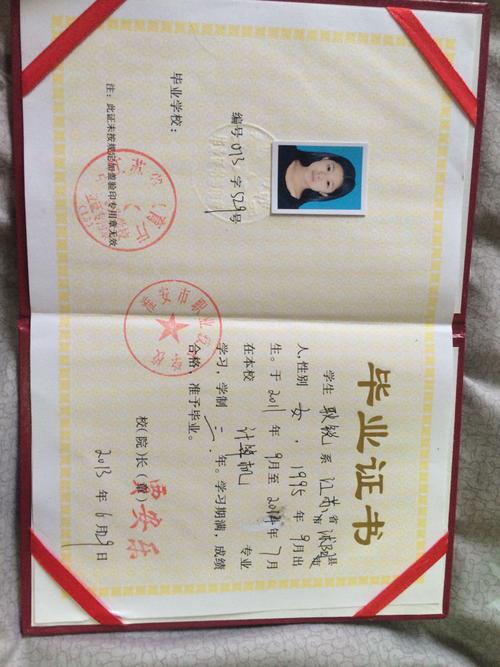 编号 013 字 529 号
毕业学校：
注：此证未按规定加盖验印专用章无效
毕业证书
学生 系 江苏 省 县
市
人，性别 女，1995 年 9 月出
生。于 2011 年 9 月至 2014 年 7 月
在本校 计算机 专业
学习，学制 年。学习期满，成绩
合格，准予毕业。
校(院)长(章)
2013 年 6 月 9 日
淮安市职业